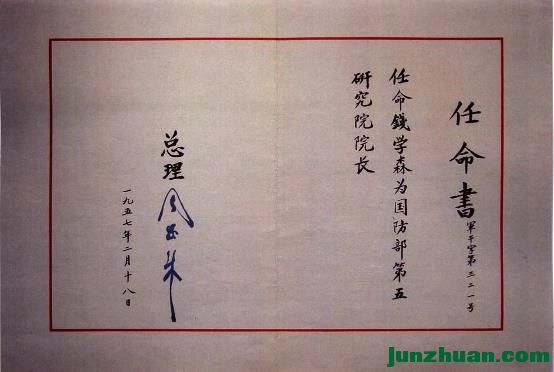 任命書
軍干字第三二一号
任命錢学森为国防部第五
研究院院长
总理
周恩来
一九五七年二月十八日
junzhuan.com